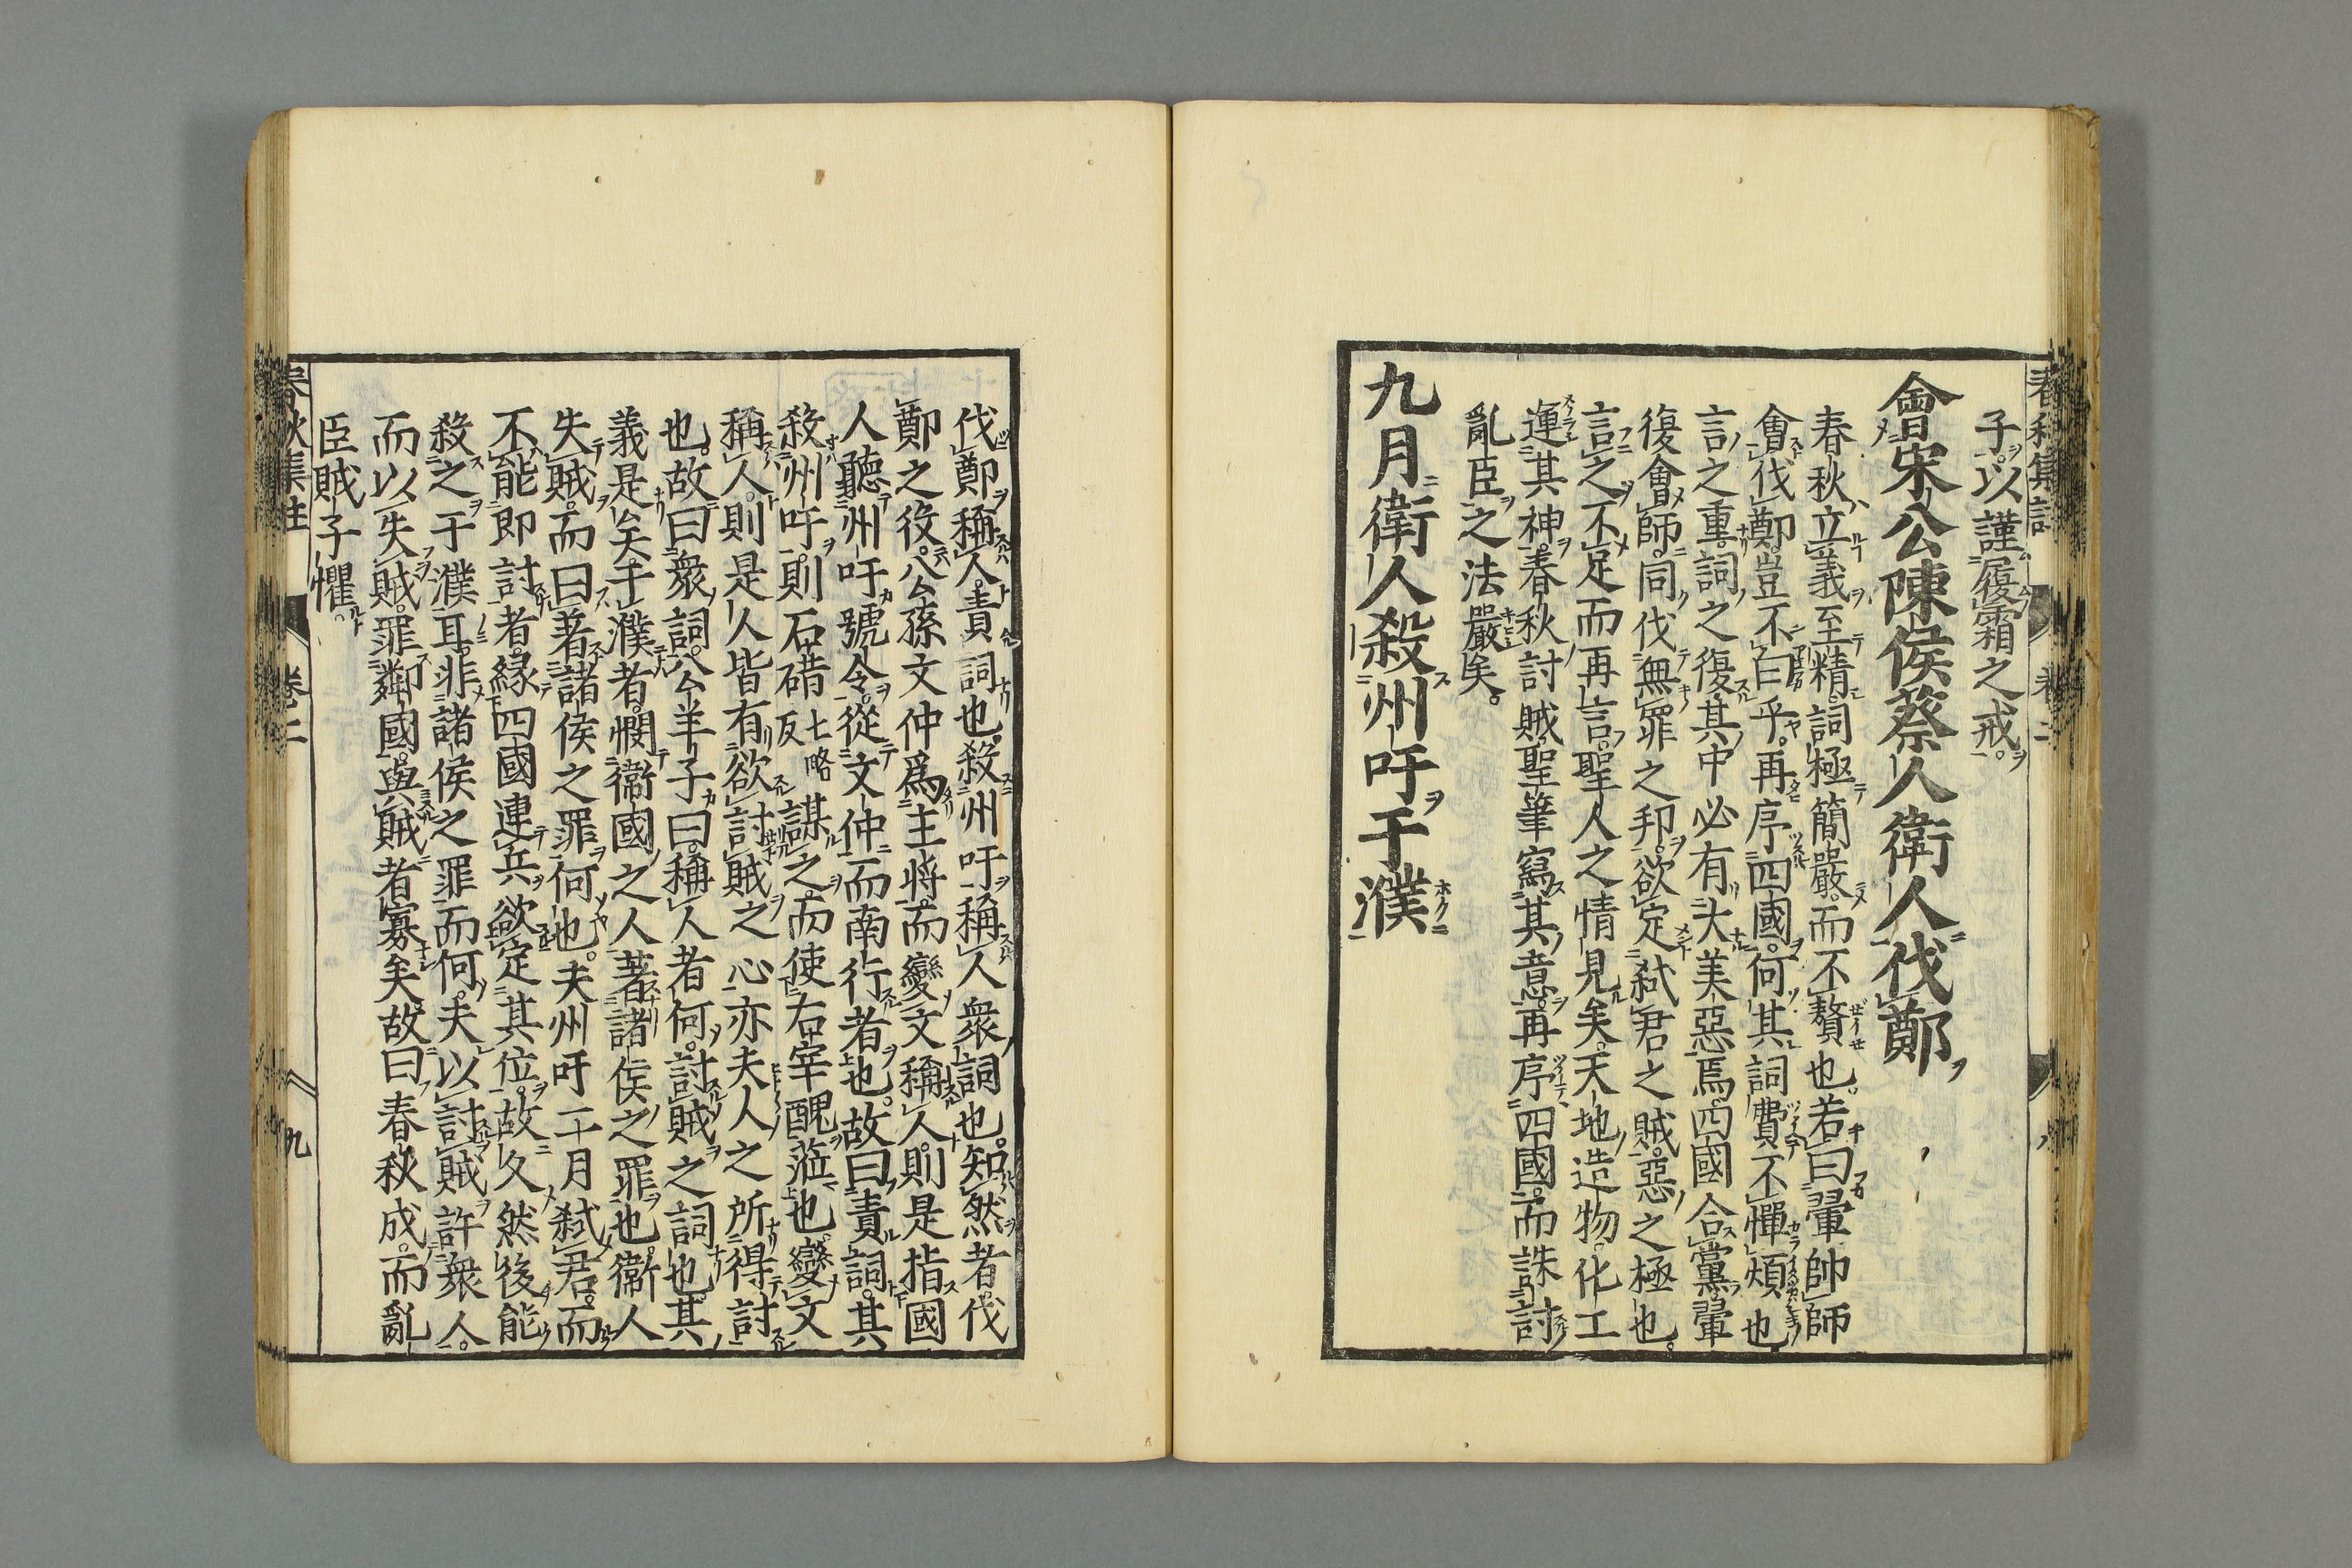 子以謹履霜之戒。
會宋公陳侯蔡人衛人伐鄭
春秋立義至精詞極簡嚴而不贅也。若曰翬帥師
會伐鄭豈不白乎。再序四國何其詞費不憚煩也
言之重詞之復其中必有大美惡焉。四國合黨翬
復會師同伐無罪之邦欲定弑君之賊惡之極也。
言之不足而再言聖人之情見矣。天地造物化工
運其神春秋討賊聖筆寫其意再序四國而誅討
亂臣之法嚴矣。
九月衛人殺州吁于濮
伐鄭稱人責詞也殺州吁稱人衆詞也。知然者伐
鄭之役公孫文仲爲主將而變文稱人則是指國
人聽州吁號令從文仲而南行者也。故曰責詞其
殺州吁則石碏七略反謀之而使右宰醜涖也變文
稱人則是人皆有欲討賊之心亦夫人之所得討
也。故曰衆詞公羊子曰稱人者何。討賊之詞也其
義是矣于濮者憫衛國之人著諸侯之罪也衛人
失賊而曰著諸侯之罪何也。夫州吁二月弑君而
不能即討者緣四國連兵欲定其位故久然後能
殺之于濮耳非諸侯之罪而何。夫以討賊許衆人。
而以失賊罪鄰國與賊者寡矣故曰春秋成而亂
臣賊子懼。
春秋集註
卷二
九